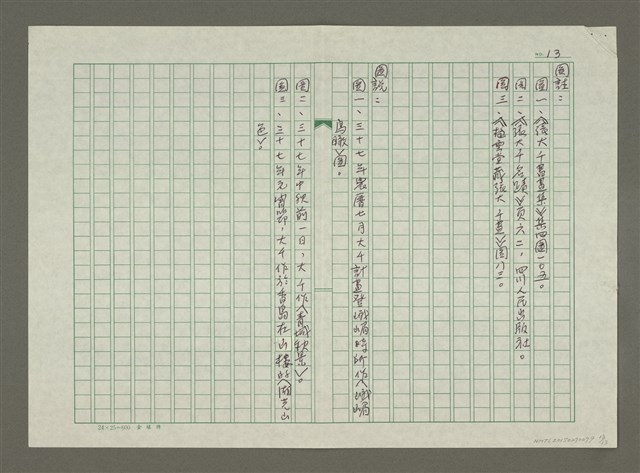 NO. 13
圖註：
圖一、《張大千書畫集》集四圖一〇五。
圖二、《張大千名蹟》頁六二，四川人民出版社。
圖三、《梅雲堂藏張大千畫》圖八三。
圖說：
圖一、三十七年農曆七月大千計畫登峨嵋時所作〈峨嵋
鳥瞰〉圖。
圖二、三十七年中秋前一日，大千作〈青城秋景〉。
圖三、三十七年元宵節，大千作於香島在山樓的〈湖光山
色〉。
24×25=600